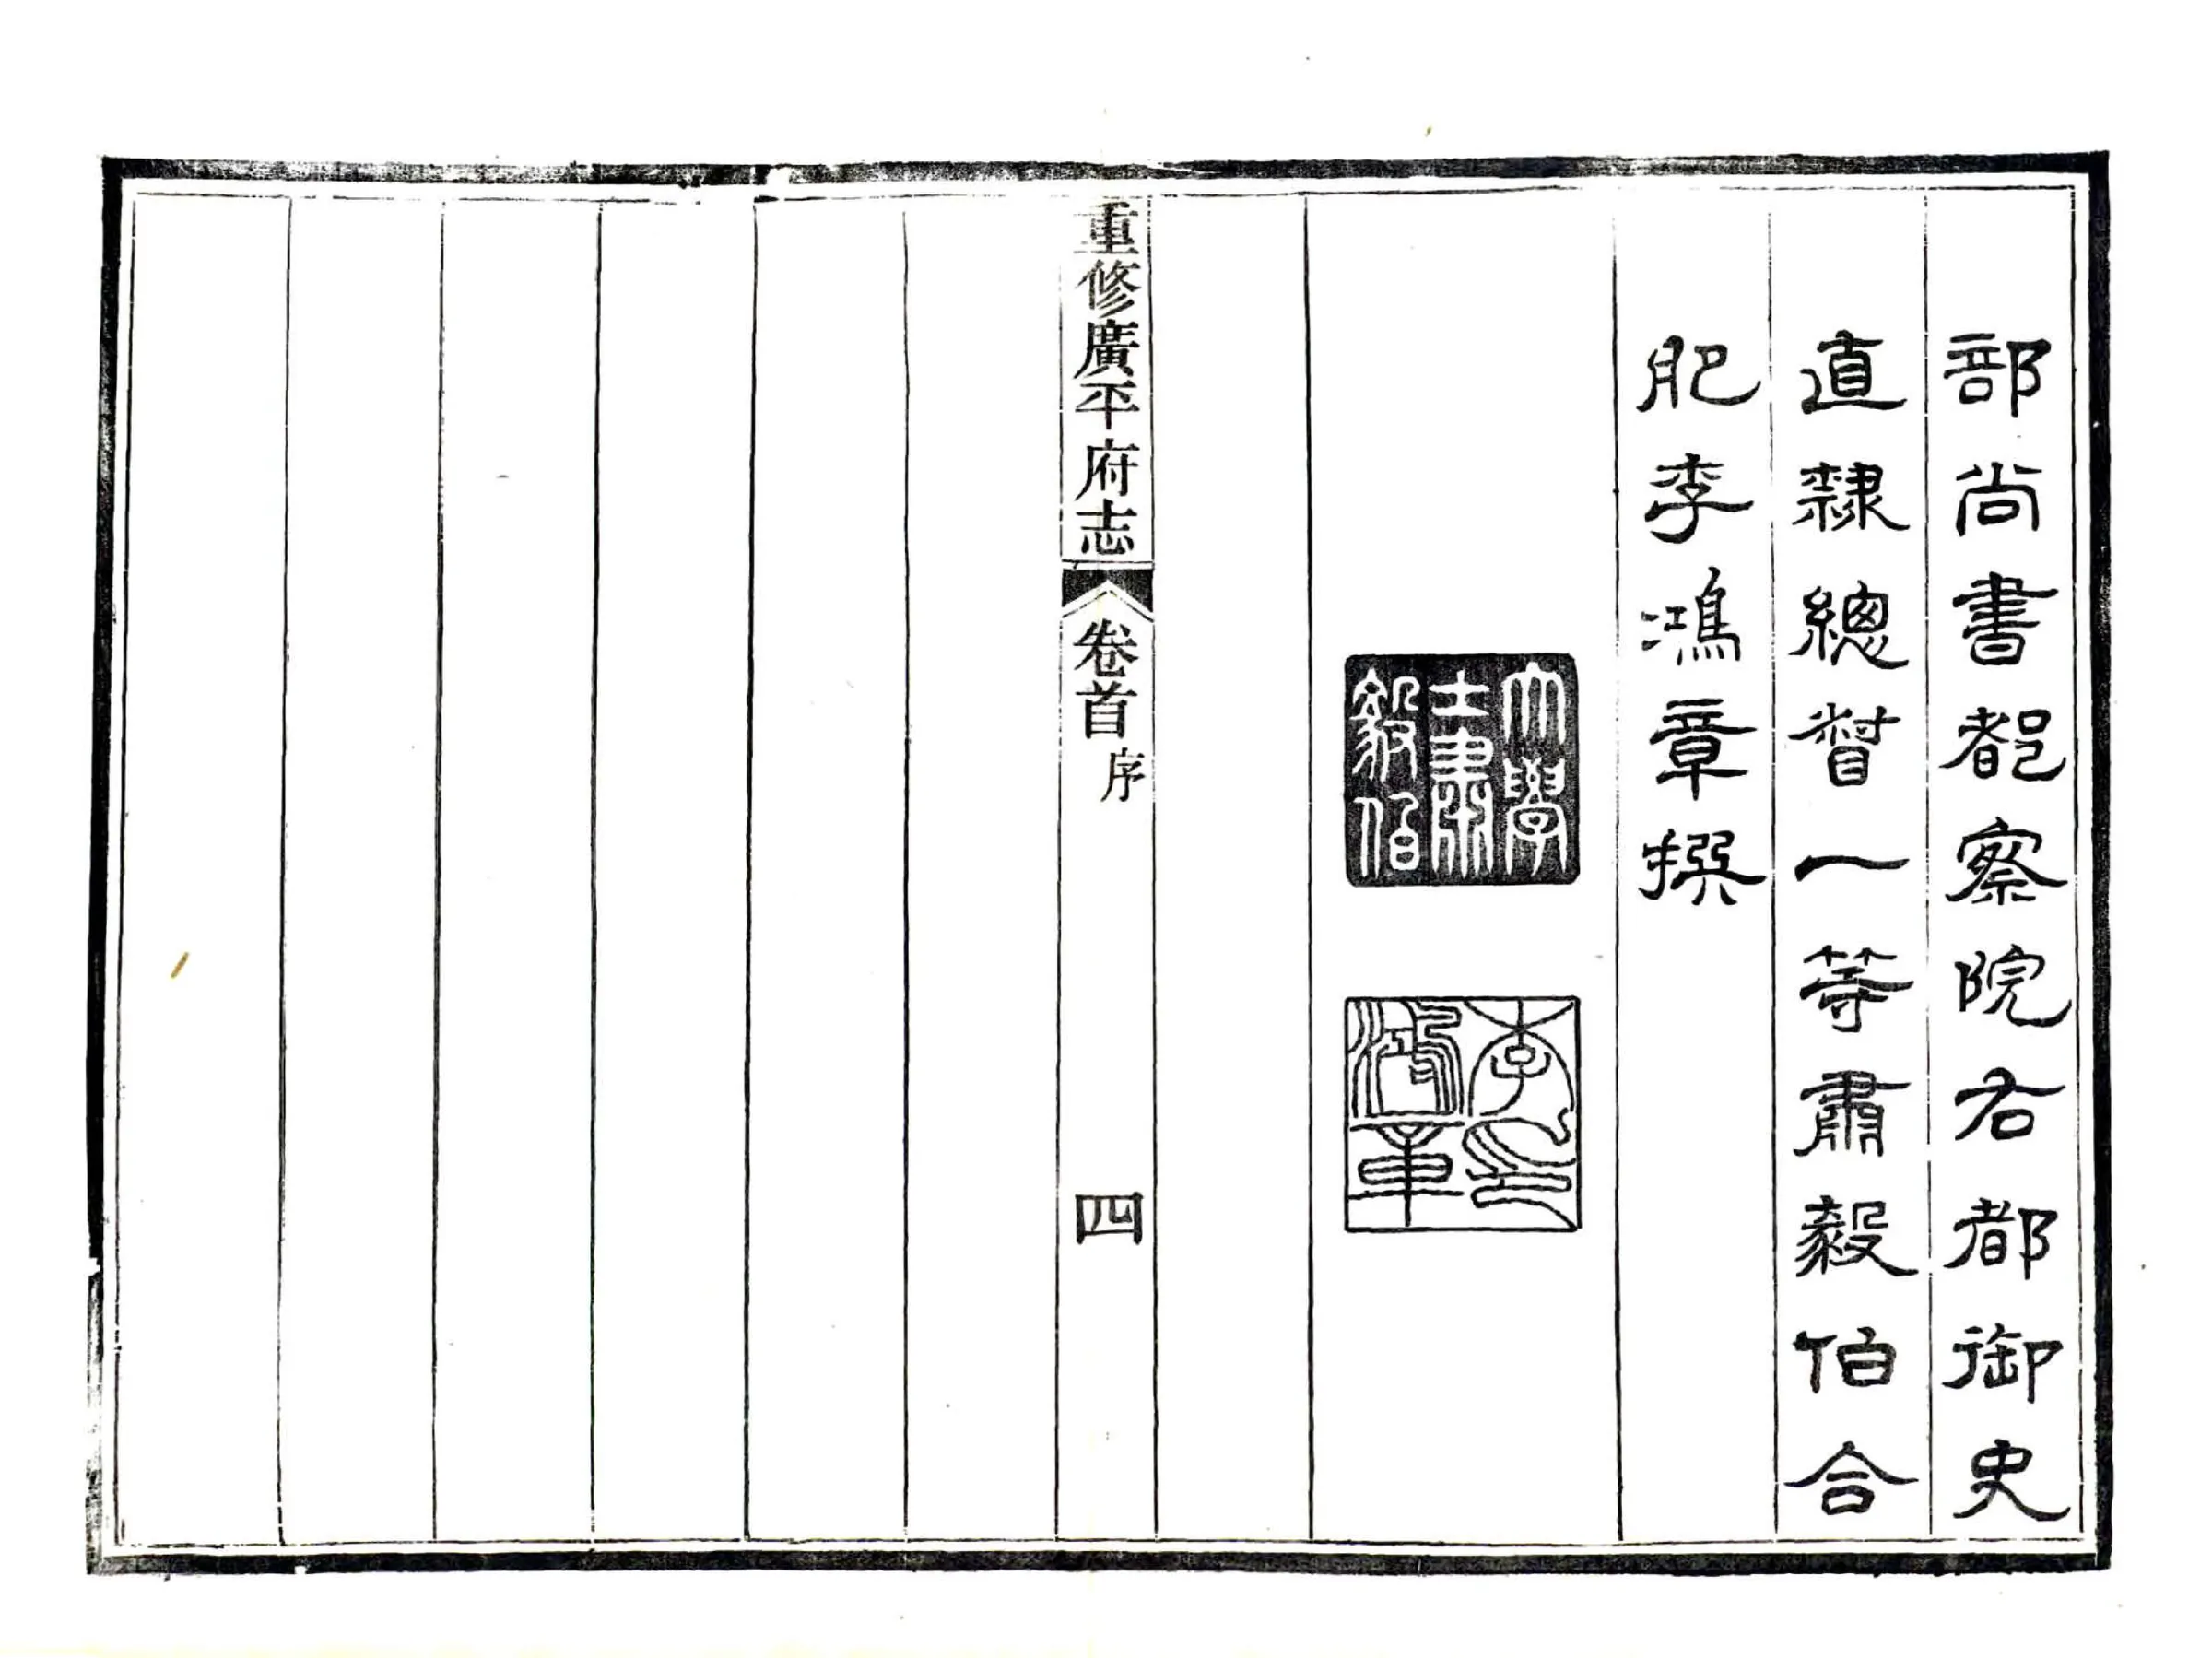 部尚書都察院右都御史
直隸總督一等肅毅伯合
肥李鴻章撰
大學
士肅
毅伯
李印
鴻章
重修廣平府志 卷首 序 四